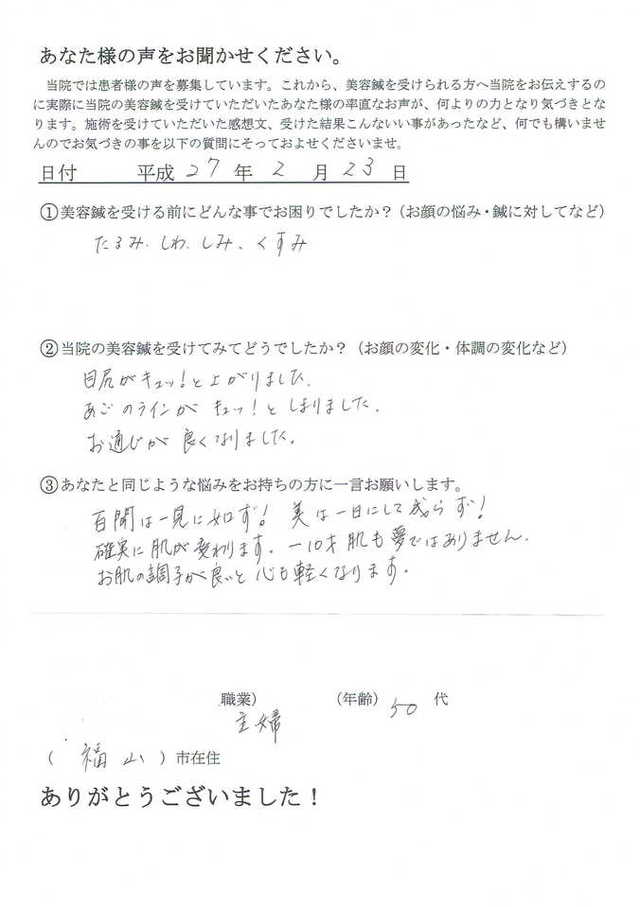 あなた様の声をお聞かせください。
当院では患者様の声を募集しています。これから、美容鍼を受けられる方へ当院をお伝えするの
に実際に当院の美容鍼を受けていただいたあなた様の率直なお声が、何よりの力となり気づきとな
ります。施術を受けていただいた感想文、受けた結果こんないい事があったなど、何でも構いませ
んのでお気づきの事を以下の質問にそっておよせくださいませ。
日付 平成 27 年 2 月 23 日
①美容鍼を受ける前にどんな事でお困りでしたか?(お顔の悩み・鍼に対してなど)
たるみ、しわ、しみ、くすみ
②当院の美容鍼を受けてみてどうでしたか?(お顔の変化・体調の変化など)
目尻がキュッ!と上がりました。
あごのラインが キュッ!と しまりました。
お通じが 良くなりました。
③あなたと同じような悩みをお持ちの方に一言お願いします。
百聞は一見に如ず! 美は一日にして成らず!
確実に肌が変わります。 -10才肌も夢ではありません。
お肌の調子が良いと 心も軽くなります。
職業) (年齢) 50 代
主婦
( 福山 )市在住
ありがとうございました!